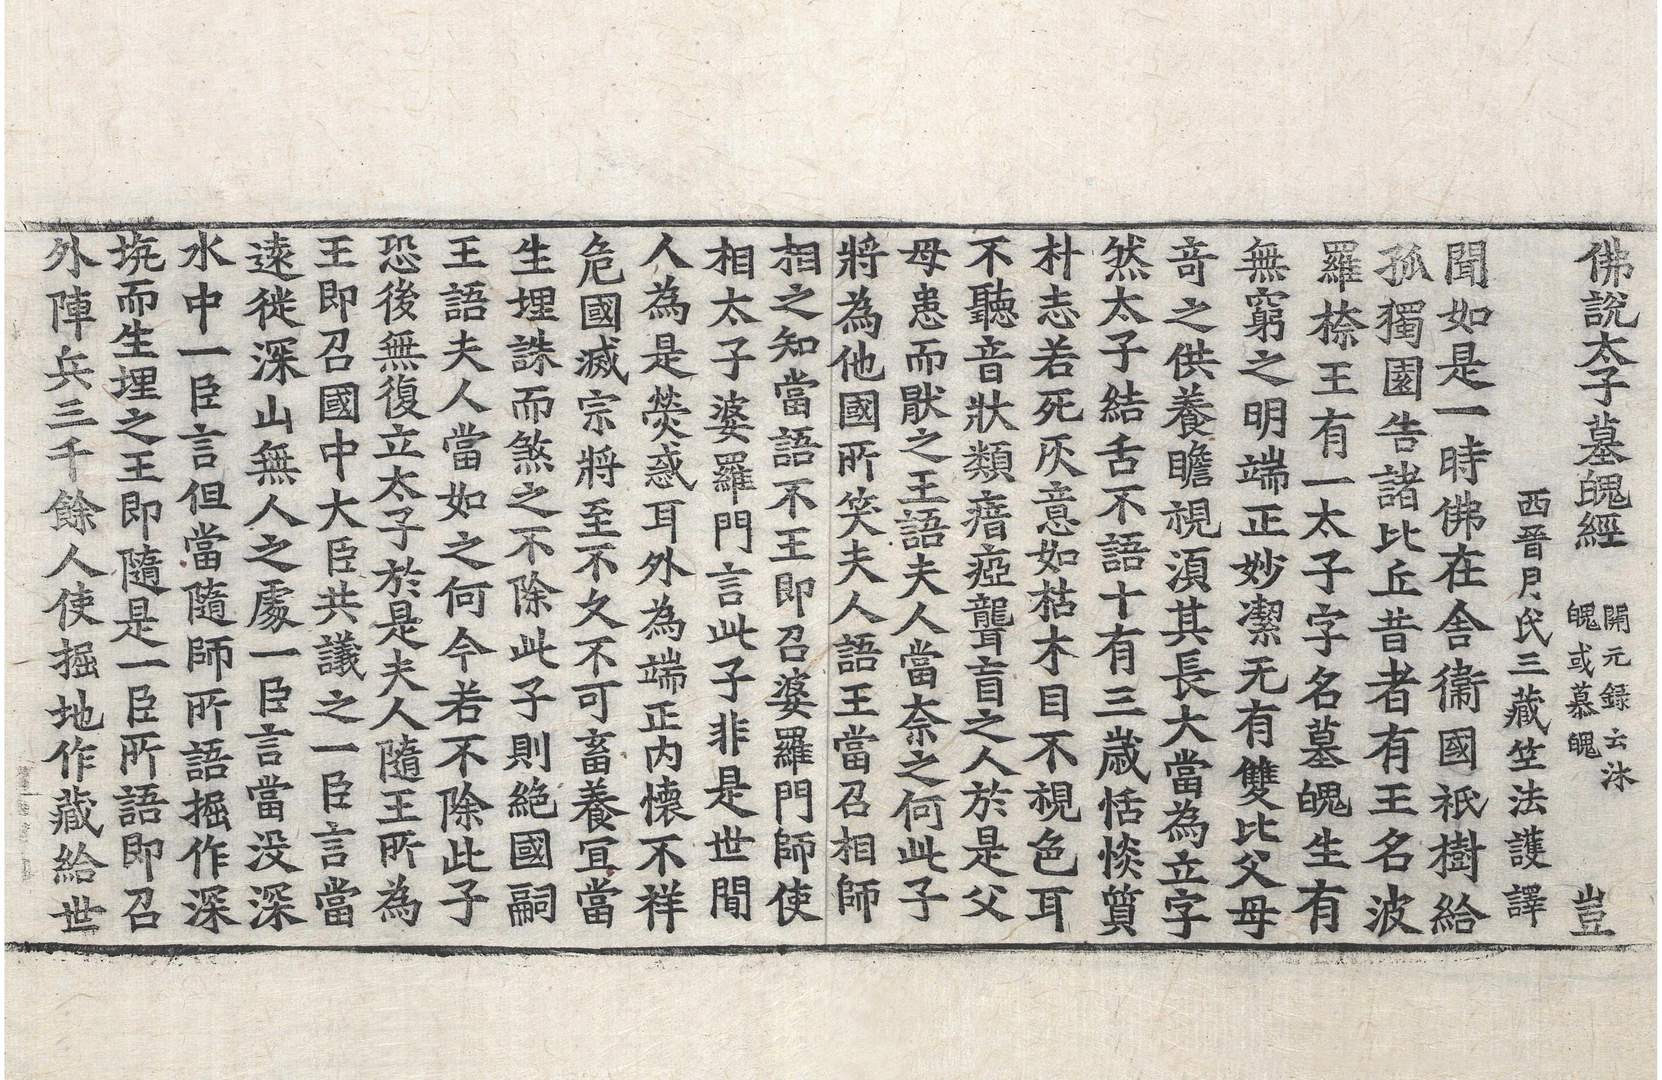 佛說太子墓魄經 開元録云沐魄或慕魄 豈
西晉月氏三藏竺法護譯
聞如是一時佛在舍衞國祇樹給
孤獨園告諸比丘昔者有王名波
羅㮈王有一太子字名墓魄生有
無窮之明端正妙潔无有雙比父母
竒之供養瞻視湏其長大當為立字
然太子結舌不語十有三歳恬惔質
朴志若死灰意如枯木目不視色耳
不聽音狀類瘖瘂聾盲之人於是父
母患而猒之王語夫人當柰之何此子
將為他國所笑夫人語王當召相師
相之知當語不王即召婆羅門師使
相太子婆羅門言此子非是世閒
人為是熒惑耳外為端正内懷不祥
危國滅宗將至不久不可畜養宜當
生埋誅而煞之不除此子則絶國嗣
王語夫人當如之何今若不除此子
恐後無復立太子於是夫人隨王所為
王即召國中大臣共議之一臣言當
遠徙深山無人之處一臣言當没深
水中一臣言但當隨師所語掘作深
坑而生埋之王即隨是一臣所語即召
外陣兵三千餘人使掘地作藏給世